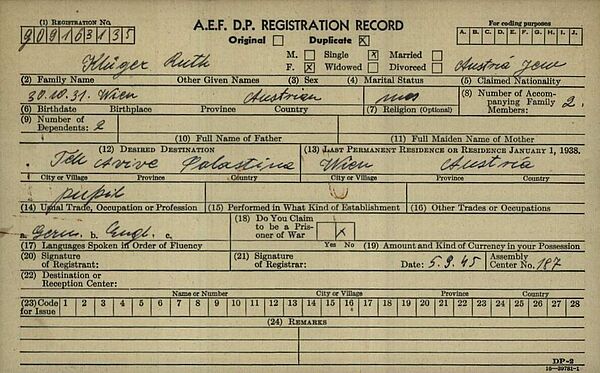 (1) REGISTRATION NO.
A.E.F. D.P. REGISTRATION RECORD
For coding purposes
G09163135
Original Duplicate X
A. B. C. D. E. F. G. H. I. J.
Klüger Ruth
M. Single X Married
F. X Widowed Divorced
Austria Jew
(2) Family Name Other Given Names (3) Sex (4) Marital Status (5) Claimed Nationality
30.10.31. Wien Austrian
(8) Number of Accompanying Family Members: 2.
(6) Birthdate Birthplace Province Country (7) Religion (Optional)
(9) Number of Dependents: 2
(10) Full Name of Father (11) Full Maiden Name of Mother
(12) DESIRED DESTINATION (13) LAST PERMANENT RESIDENCE OR RESIDENCE JANUARY 1, 1938.
Tell Avive Palästina Wien Austria
City or Village Province Country City or Village Province Country
pupil
(14) Usual Trade, Occupation or Profession (15) Performed in What Kind of Establishment (16) Other Trades or Occupations
a. Germ. b. Engl. c.
(18) Do You Claim to be a Prisoner of War X
Yes No
(17) Languages Spoken in Order of Fluency (19) Amount and Kind of Currency in your Possession
(20) Signature of Registrant: (21) Signature of Registrar: Date: 5.9.45 Assembly Center No. 187
(22) Destination or Reception Center:
Name or Number City or Village Province Country
(23) Code for Issue 1 2 3 4 5 6 7 8 9 10 11 12 13 14 15 16 17 18 19 20 21 22 23 24 25 26 27 28
(24) REMARKS
DP-2
16-39781-1